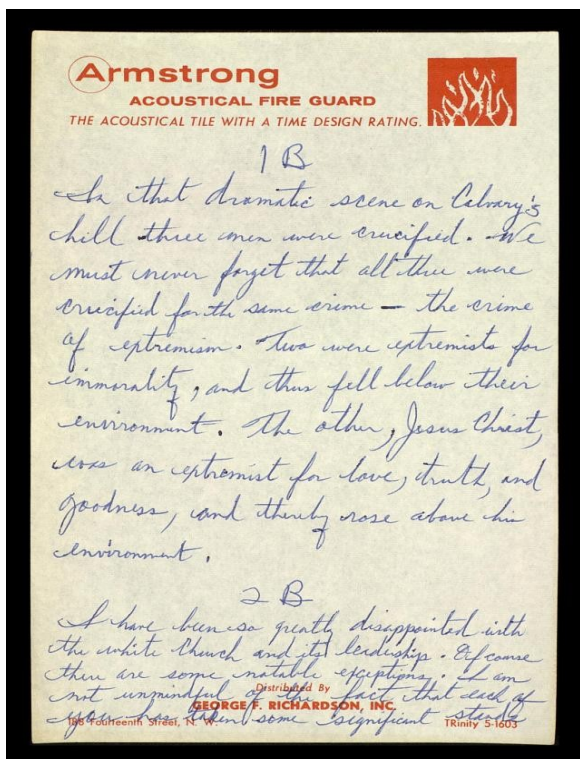 Armstrong
ACOUSTICAL FIRE GUARD
THE ACOUSTICAL TILE WITH A TIME DESIGN RATING.
1 B
In that dramatic scene on Calvary's
hill three men were crucified. We
must never forget that all three were
crucified for the same crime — the crime
of extremism. Two were extremists for
immorality, and thus fell below their
environment. The other, Jesus Christ,
was an extremist for love, truth, and
goodness, and thereby rose above his
environment.
2 B
I have been so greatly disappointed with
the white Church and its leadership. Of course
there are some notable exceptions. I am
not unmindful of the fact that each of
you has taken some significant stands
Distributed By
GEORGE F. RICHARDSON, INC.
Fourteenth Street, N. W.
TRinity 5-1603